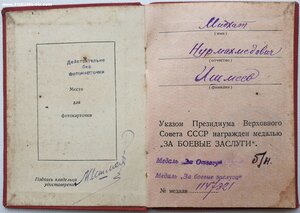 Действительно
без
фотокарточки
Место
для
фотокарточки
Подпись владельца
удостоверения
Мидхат
(имя)
Нурмахмедович
(отчество)
Ишмеев
(фамилия)
Указом Президиума Верховного
Совета СССР награжден медалью
„ЗА БОЕВЫЕ ЗАСЛУГИ".
Медаль „За Отвагу" б/н.
Медаль „За боевые заслуги"
№ медали 1147321